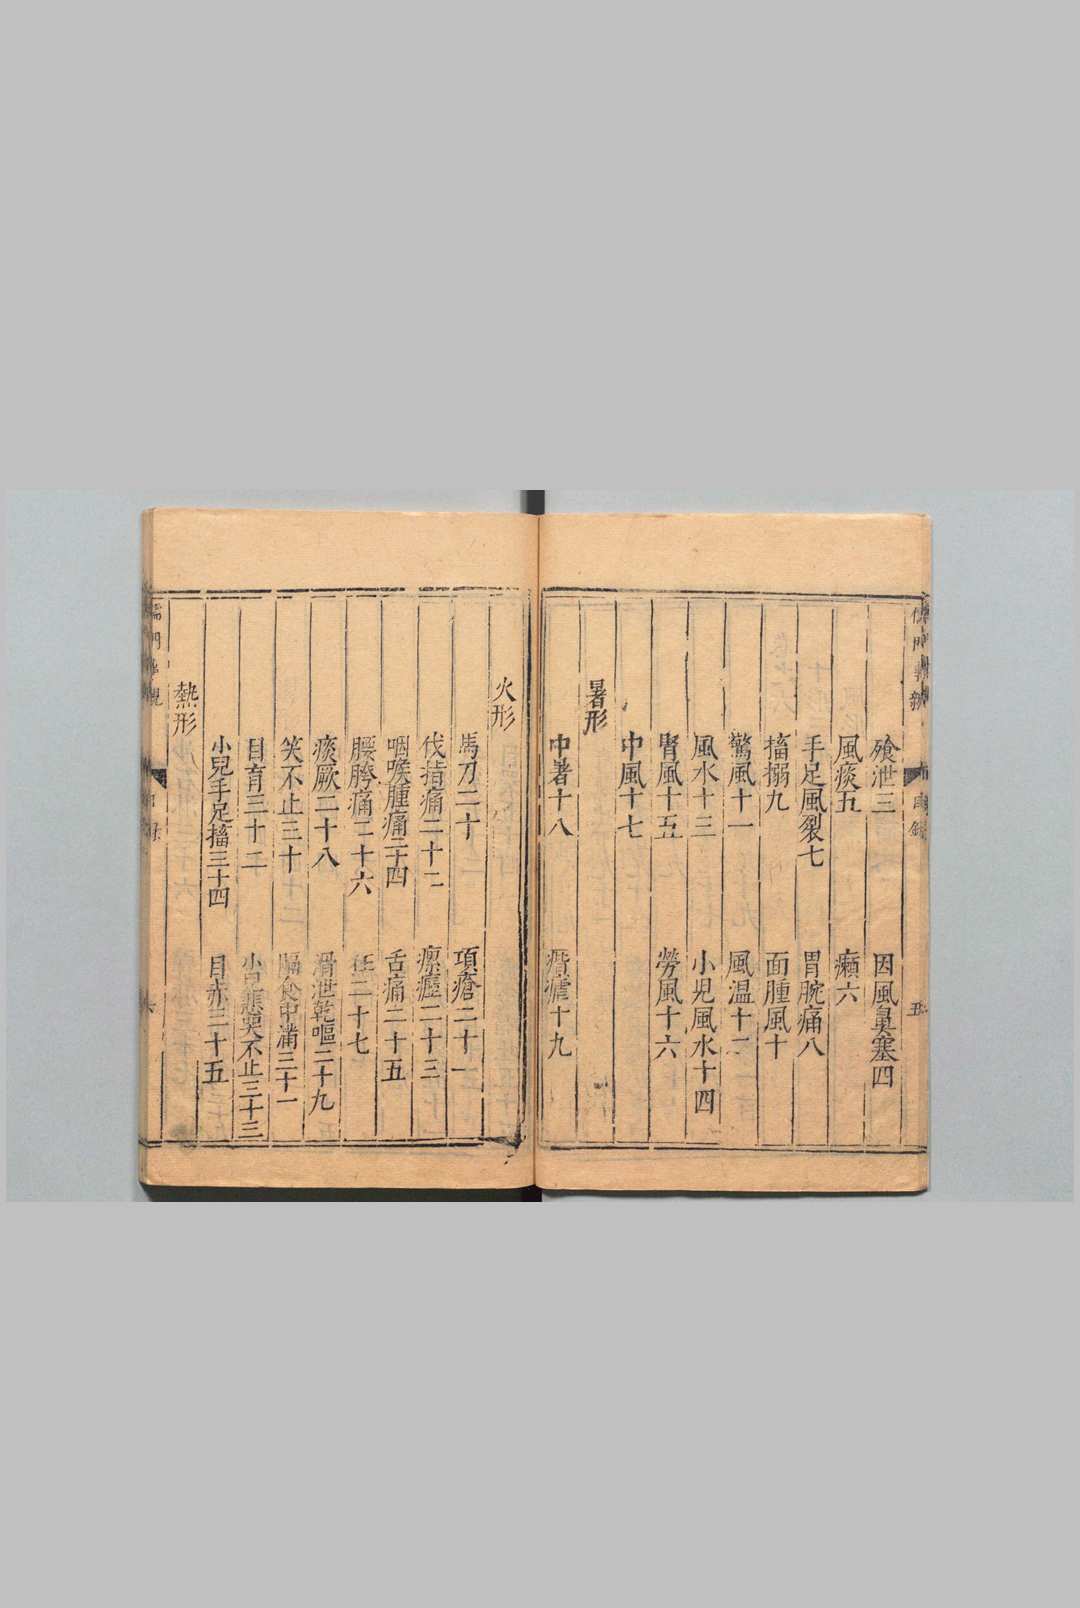 飱泄三　因風鼻塞四
風痰五　癩六
手足風裂七　胃脘痛八
搐搦九　面腫風十
驚風十一　風温十二
風水十三　小児風水十四
腎風十五　勞風十六
中風十七
暑形
中暑十八　痟瘧十九
火形
馬刀二十　項瘡二十一
代指痛二十二　瘰癧二十三
咽喉腫痛二十四　舌痛二十五
腰胯痛二十六　狂二十七
痰厥二十八　滑泄乾嘔二十九
笑不止三十　膈食中滿三十一
目盲三十二　小兒悲哭不止三十三
小兒手足搐三十四　目赤三十五
熱形
目錄
五